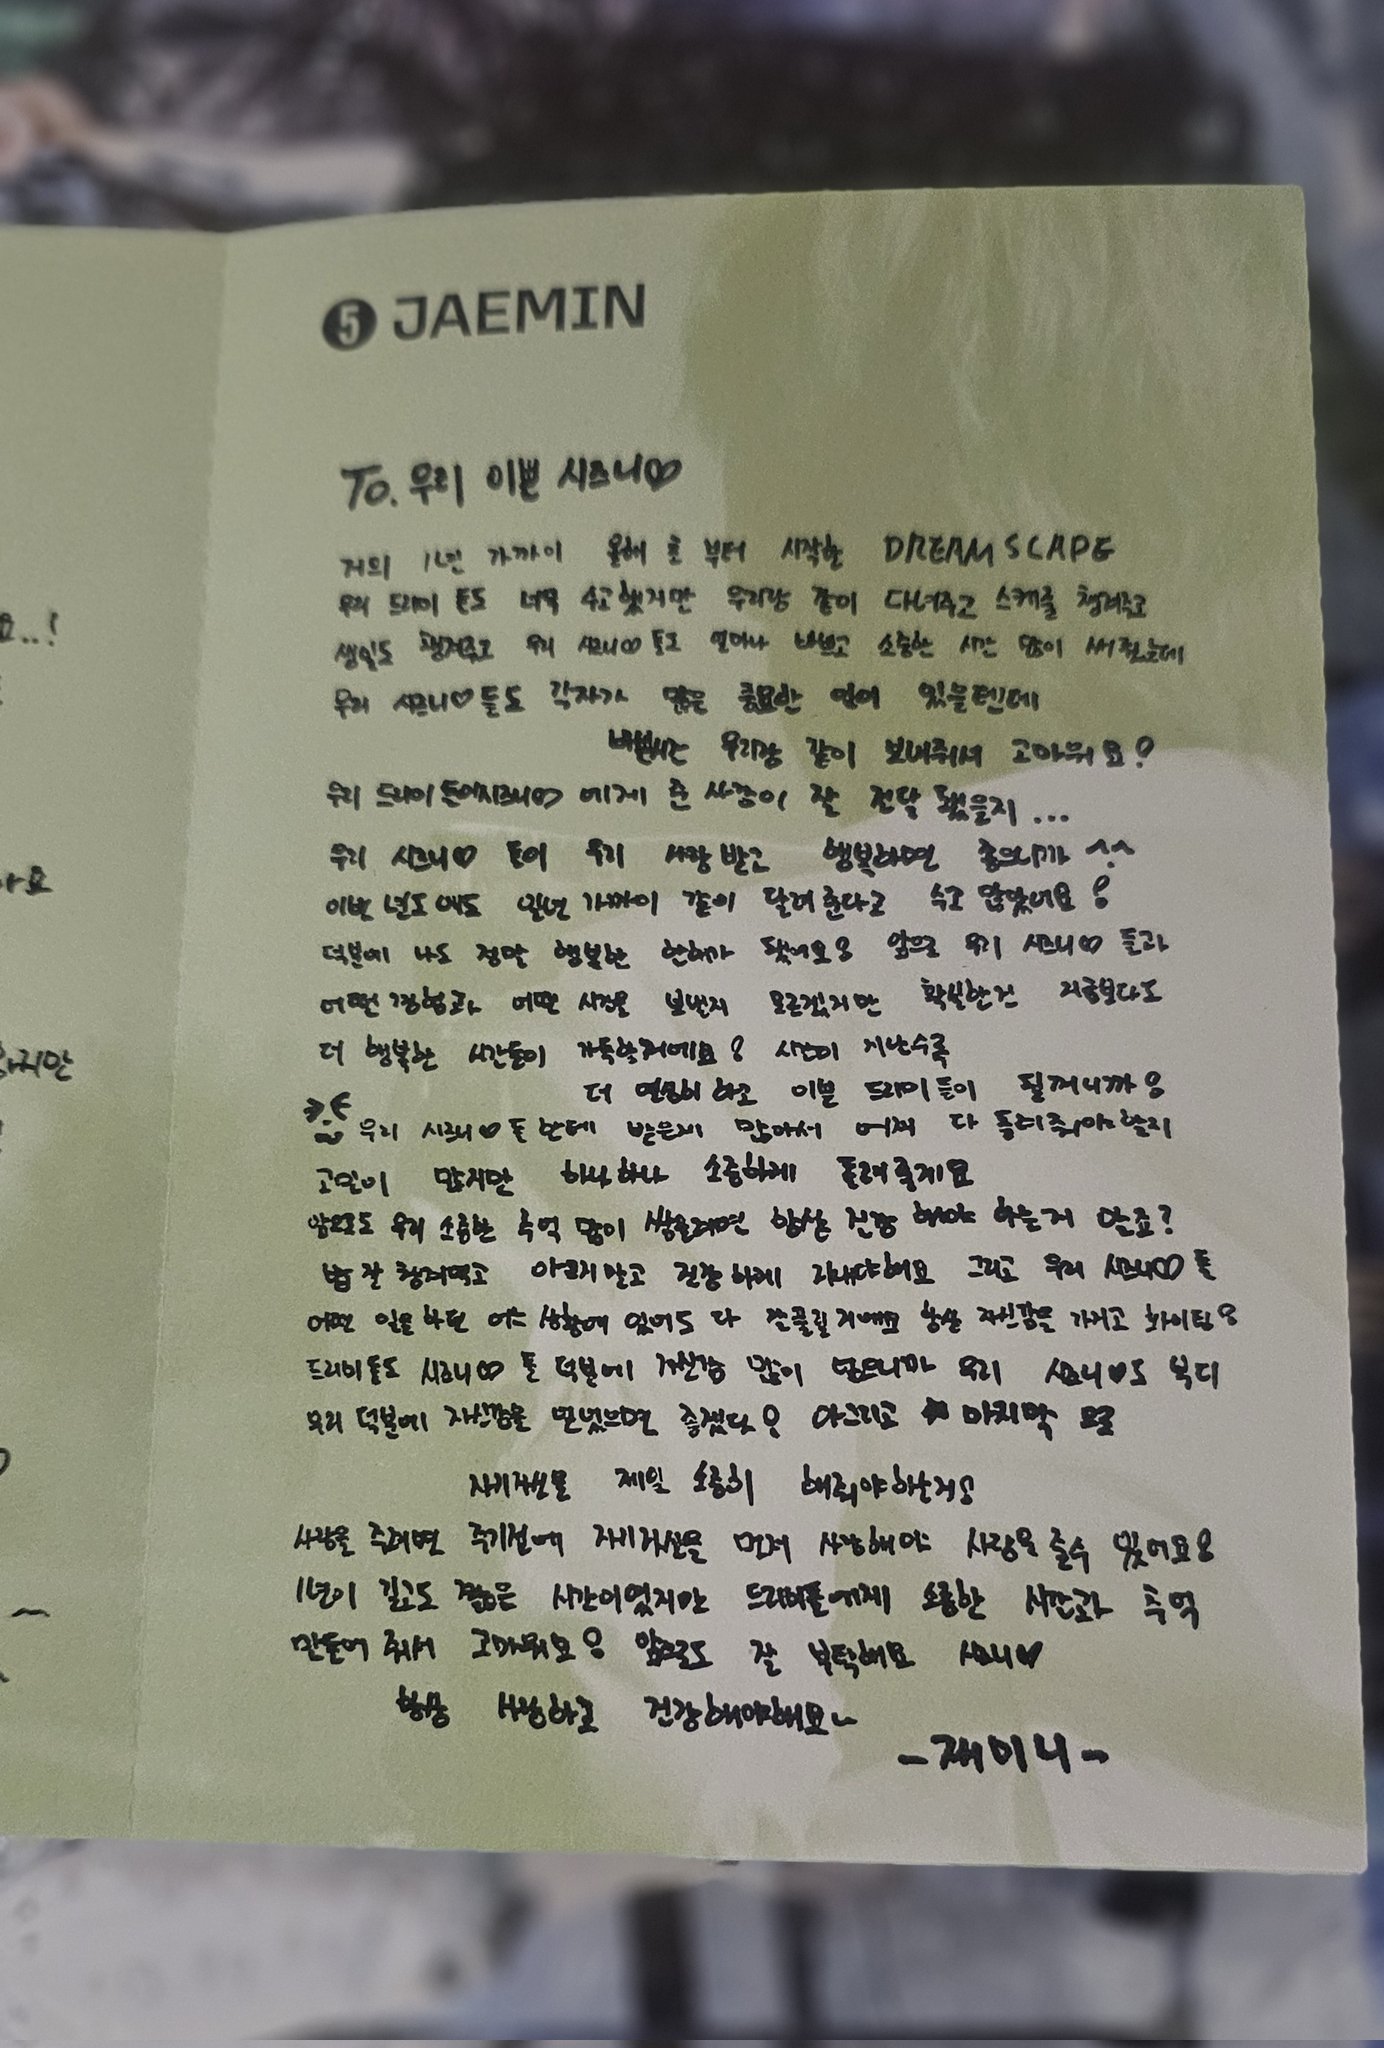 요..!
아요
하지만
5 JAEMIN
To. 우리 이쁜 시즈니♡
거의 1년 가까이 올해 초 부터 시작한 DREAMSCAPE
우리 드리미 들도 너무 수고했지만 우리랑 같이 다녀주고 스케줄 챙겨주고
생일도 챙겨주고 우리 시즈니♡ 들도 얼마나 바쁘고 소중한 시간 많이 써줬는데
우리 시즈니♡들도 각자가 많은 중요한 일이 있을텐데
우리랑 같이 보내줘서 고마워요!
우리 드리미 들이 시즈니♡ 에게 준 사랑이 잘 전달 됐을지...
우리 시즈니♡ 들이 우리 사랑 받고 행복하면 좋으니까 ^^
이번 년도에도 일년 가까이 같이 달려준다고 수고 많았어요!
덕분에 나도 정말 행복한 한해가 됐어요! 앞으로 우리 시즈니♡ 들과
어떤 경험과 어떤 시간을 보낼지 모르겠지만 확실한건 지금보다도
더 행복한 시간들이 가득할거에요! 시간이 지날수록
더 열심히 하고 이쁜 드리미 들이 될꺼니까!
우리 시즈니♡들 한테 받은게 많아서 어찌 다 돌려줘야할지
고민이 많지만 하나하나 소중하게 돌려줄게요
앞으로도 우리 소중한 추억 많이 쌓을려면 항상 건강 해야 하는거 알죠?
밥 잘 챙겨먹고 아프지말고 건강하게 지내야해요 그리고 우리 시즈니♡들
어떤 일을 하던 어느 상황에 있어도 다 잘풀릴거에요 항상 자신감을 가지고 화이팅!
드리미들도 시즈니♡ 들 덕분에 자신감 많이 얻으니까 우리 시즈니♥도 부디
우리 덕분에 자신감을 얻었으면 좋겠다! 아그리고 마지막 으로
자기자신을 제일 소중히 해줘야하는거!
사랑을 주려면 주기전에 자기자신을 먼저 사랑해야 사랑을 줄수 있어요!
1년이 길고도 짧은 시간이였지만 드리미들에게 소중한 시간과 추억
만들어 줘서 고마워요! 앞으로도 잘 부탁해요 시즈니♥
항상 사랑하고 건강해야해요~
-재미니-